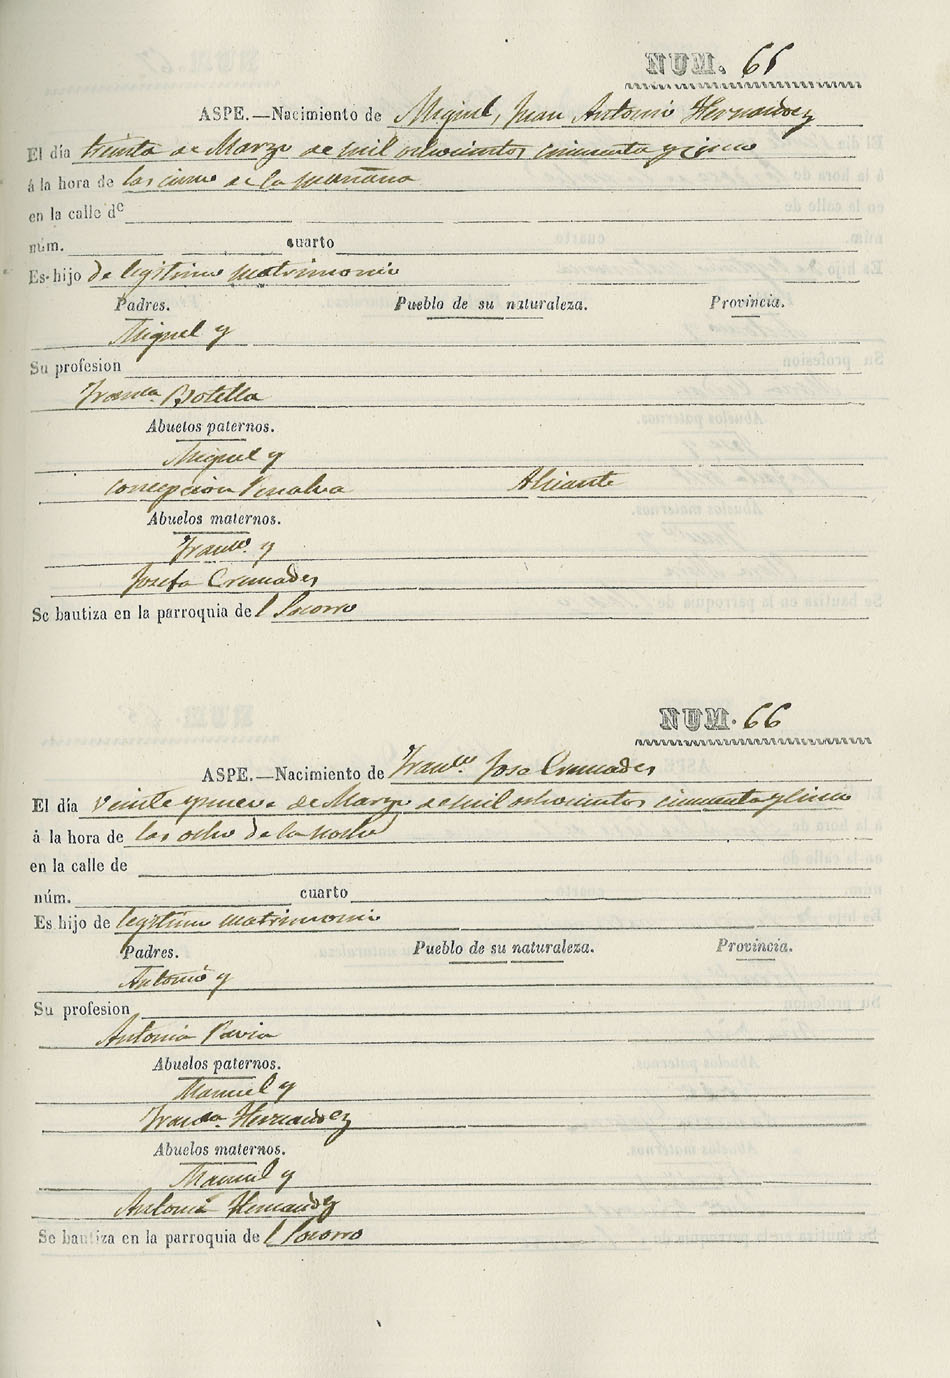 NUM. 65
ASPE.—Nacimiento de Miguel, Juan Antonio Hernandez
El día treinta de Marzo de mil ochocientos cincuenta y cinco
á la hora de las cinco de la mañana
en la calle de
núm. cuarto
Es hijo de legitimo matrimonio
Padres. Pueblo de su naturaleza. Provincia.
Miguel y
Su profesion
Franca. Botella
Abuelos paternos.
Miguel y
Concepcion Penalva Alicante
Abuelos maternos.
Franco. y
Josefa Cremades
Se bautiza en la parroquia del Socorro
NUM. 66
ASPE.—Nacimiento de Franco. Jose Cremades
El día veinte y nueve de Marzo de mil ochocientos cincuenta y cinco
á la hora de las ocho de la noche
en la calle de
núm. cuarto
Es hijo de legitimo matrimonio
Padres. Pueblo de su naturaleza. Provincia.
Antonio y
Su profesion
Antonia Pavia
Abuelos paternos.
Manuel y
Franca. Hernandez
Abuelos maternos.
Manuel y
Antonia Hernandez
Se bautiza en la parroquia del Socorro